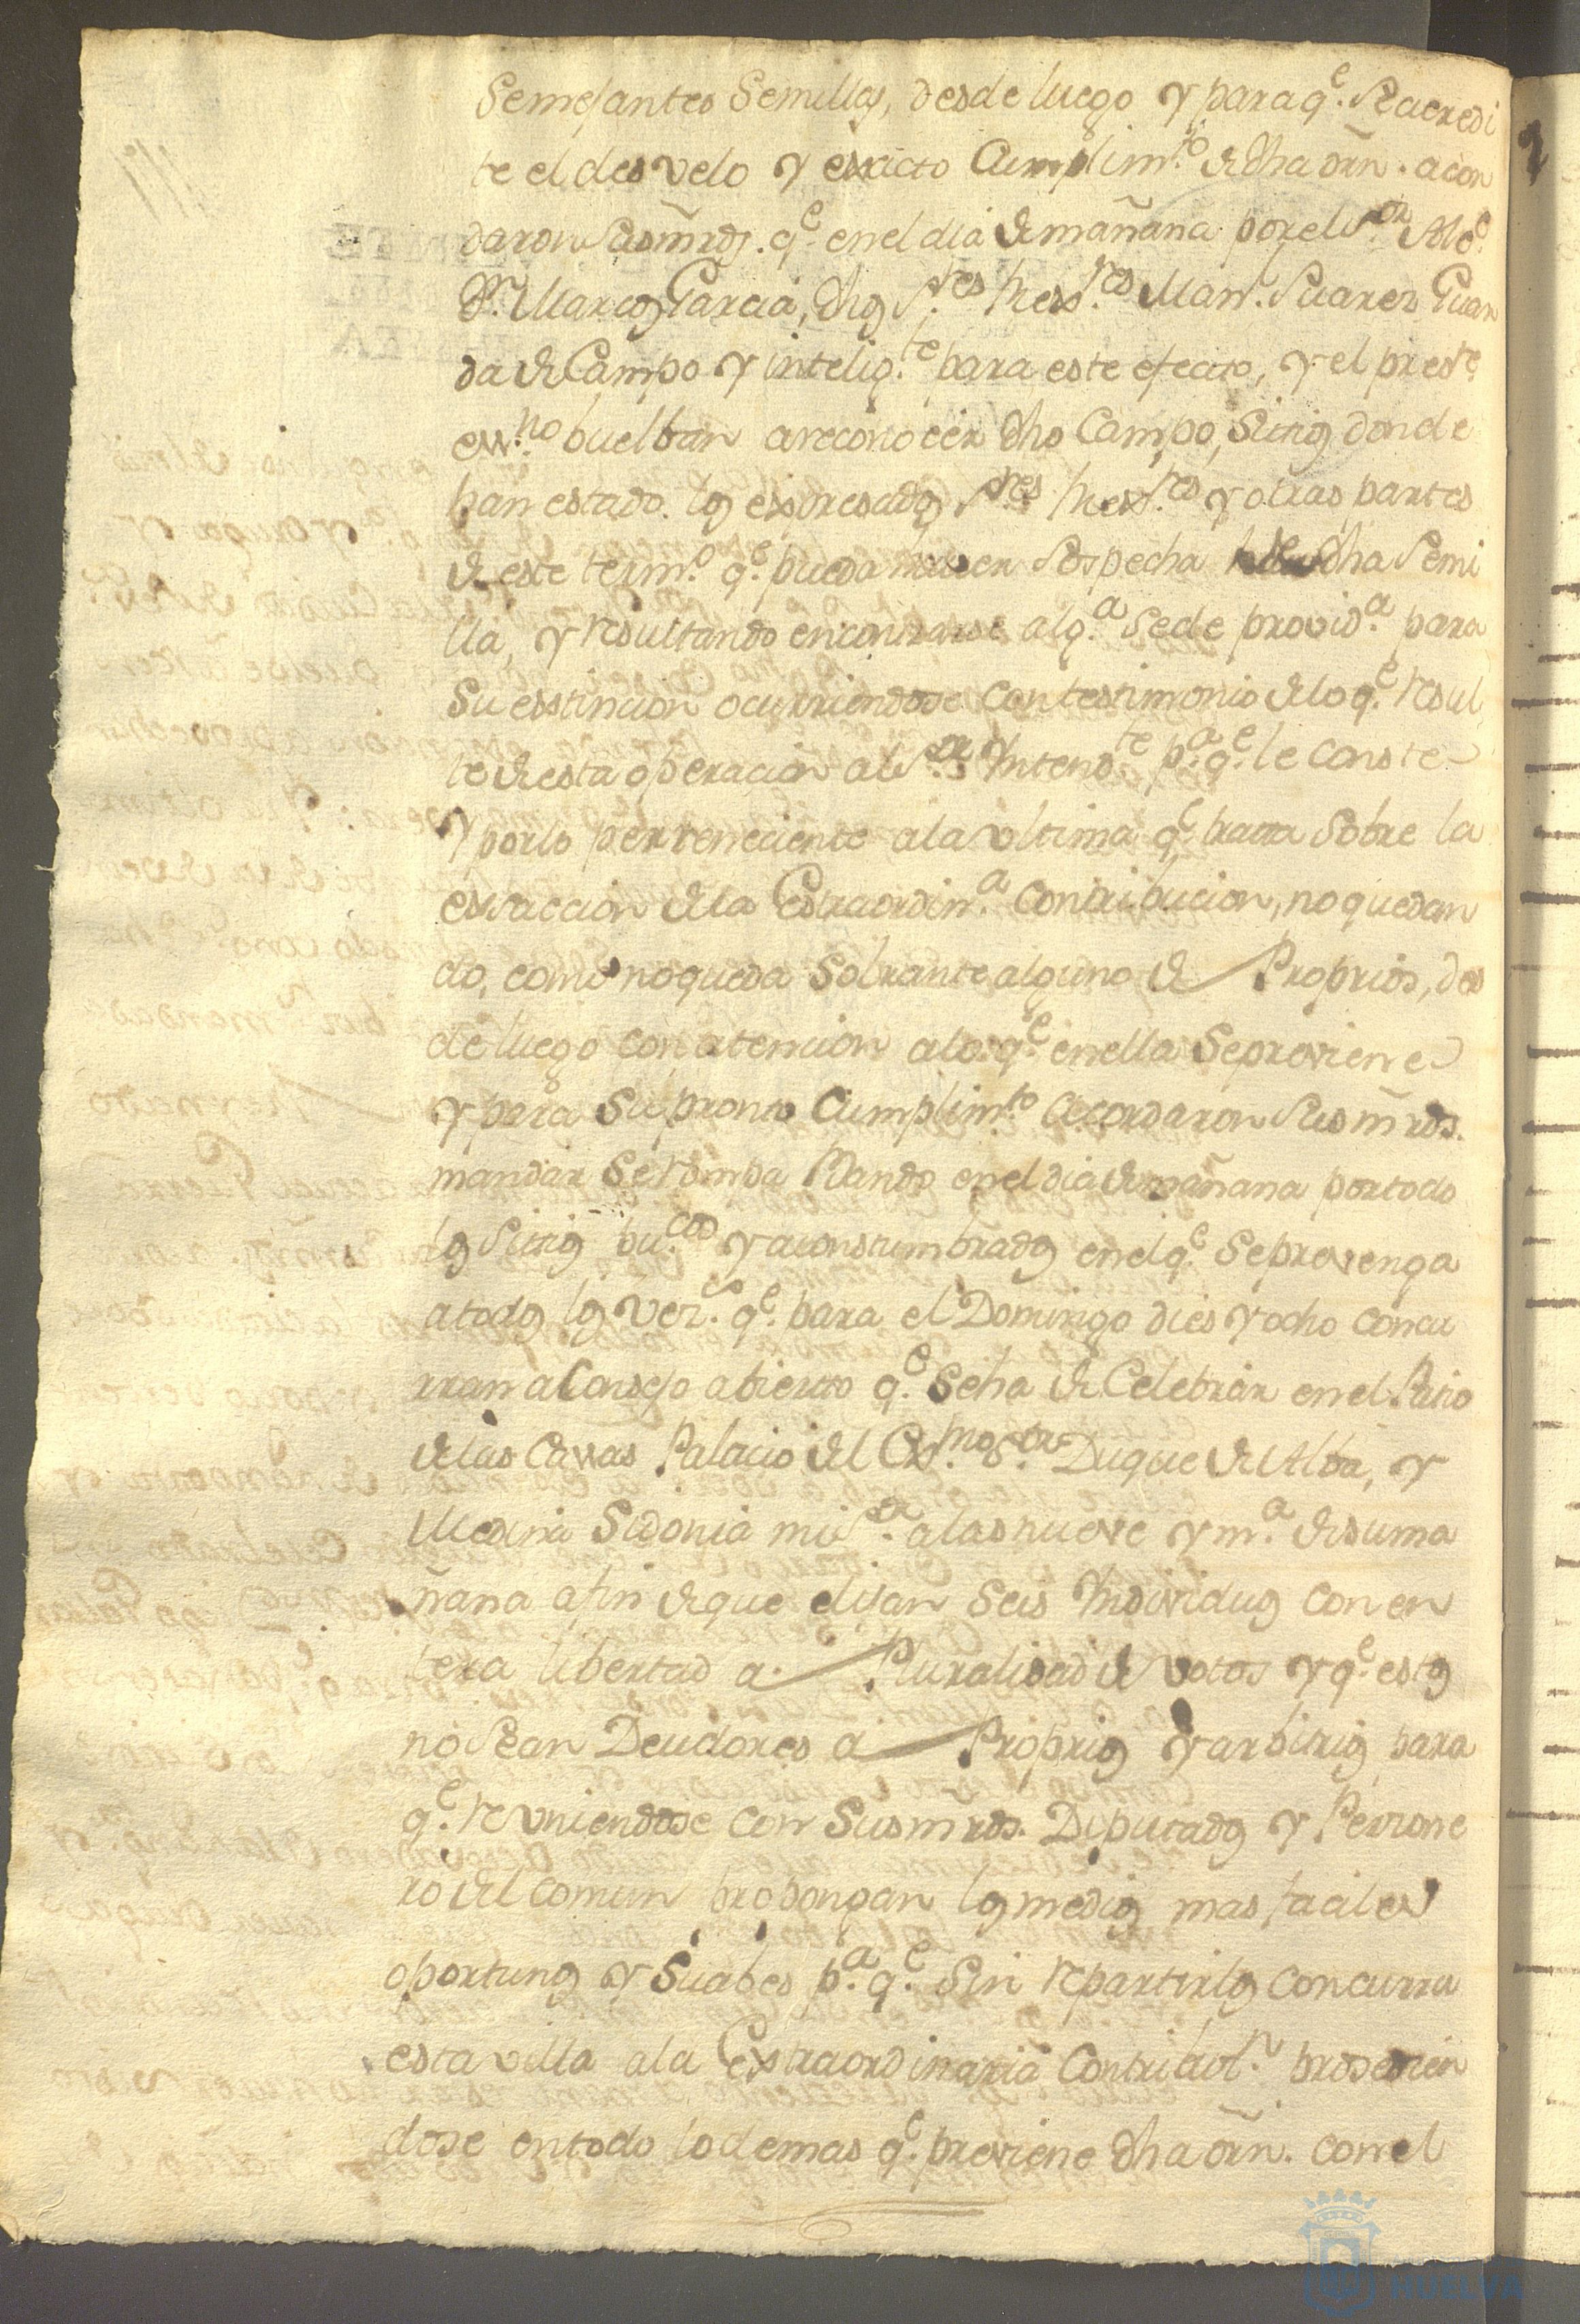 Semejantes Semillas, desde luego y para q.e Se acredi
te el desvelo y exacto Cumplim.to de dha orn. acor
daron Sus mrds. q.e en el dia de mañana por el S.or Alc.e
D.n Marcos Garcia, dhos S.res Rex.res Man.l Suarez Guar
da de Campo y intelig.te para este efecto, y el pres.te
ess.no buelban a reconocer dho Campo, Sitios donde
han estado los expresados S.res Rex.res y otras partes
de este term.o q.e pueda haver Sospecha dha Semi
lla, y resultando encontrarse alg.a Se de provid.a para
Su esstincion ocurriendose con testimonio de lo q.e resul
te de esta operacion al S.or Yntend.te p.a q.e le conste
Y por lo perteneciente a la vltima q.e trata Sobre la
essaccion de la Estraordin.a Contribucion, no quedan
do, como no queda Sobrante alguno de Proprios, des
de luego con atencion a lo q.e en ella Se previene
y para Su pronto Cumplim.to acordaron Sus mrds.
mandar Se rompa Bando en el dia de mañana por todo
los Sitios pu.cos y aconstumbrados en el q.e Se prevenga
a todos los vez.s q.e para el Domingo dies y ocho concu
rran a Consejo abierto q.e Se ha de Celebrar en el Patio
de las Cassas Palacio del Ex.mo S.or Duque de Alba, y
Medina Sidonia mi S.or a las nueve y m.a de su ma
ñana a fin de que elijan Seis Yndividuos con en
tera libertad a Pluralidad de votos y q.e estos
no Sean Deudores a Proprios y arbitrios para
q.e reuniendose con Sus mrds. Diputados y Perzone
ro del comun propongan los medios mas faciles
oportunos y Suabes p.a q.e Sin repartirlos concurra
esta villa a la Extraordinaria Contribuz.n prosedien
dose en todo lo demas q.e previene dha orn. con el
HUELVA